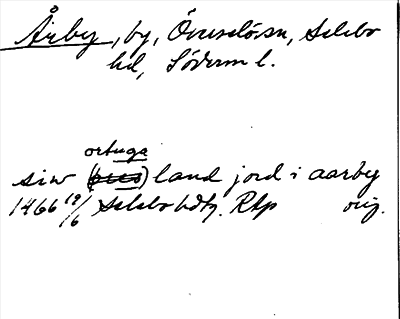 Årby, by, Överselö sn, Selebo
hd, Söderm l.
ortuga
siw () land jord i aarby
1466 19/6 Selebo hdtg. Rap orig.